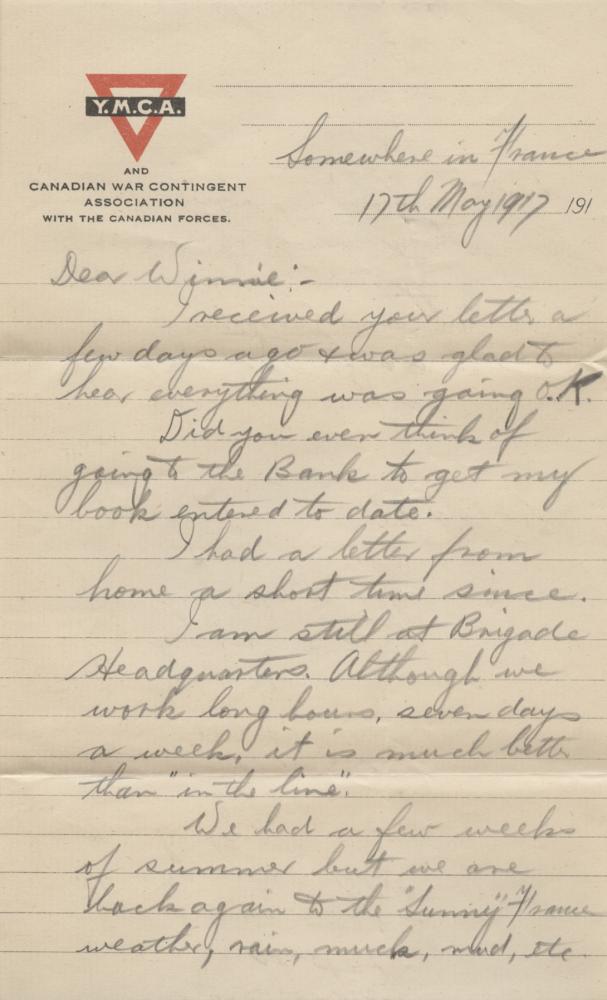 Y.M.C.A.
AND
CANADIAN WAR CONTINGENT
ASSOCIATION
WITH THE CANADIAN FORCES.
Somewhere in France
17th May 1917 191
Dear Winnie:-
I received your letter a
few days ago & was glad to
hear everything was going O.K.
Did you ever think of
going to the Bank to get my
book entered to date.
I had a letter from
home a short time since.
I am still at Brigade
Headquarters. Although we
work long hours, seven days
a week, it is much better
than "in the line".
We had a few weeks
of summer but we are
back again to the "Sunny" France
weather, rain, muck, mud, etc.